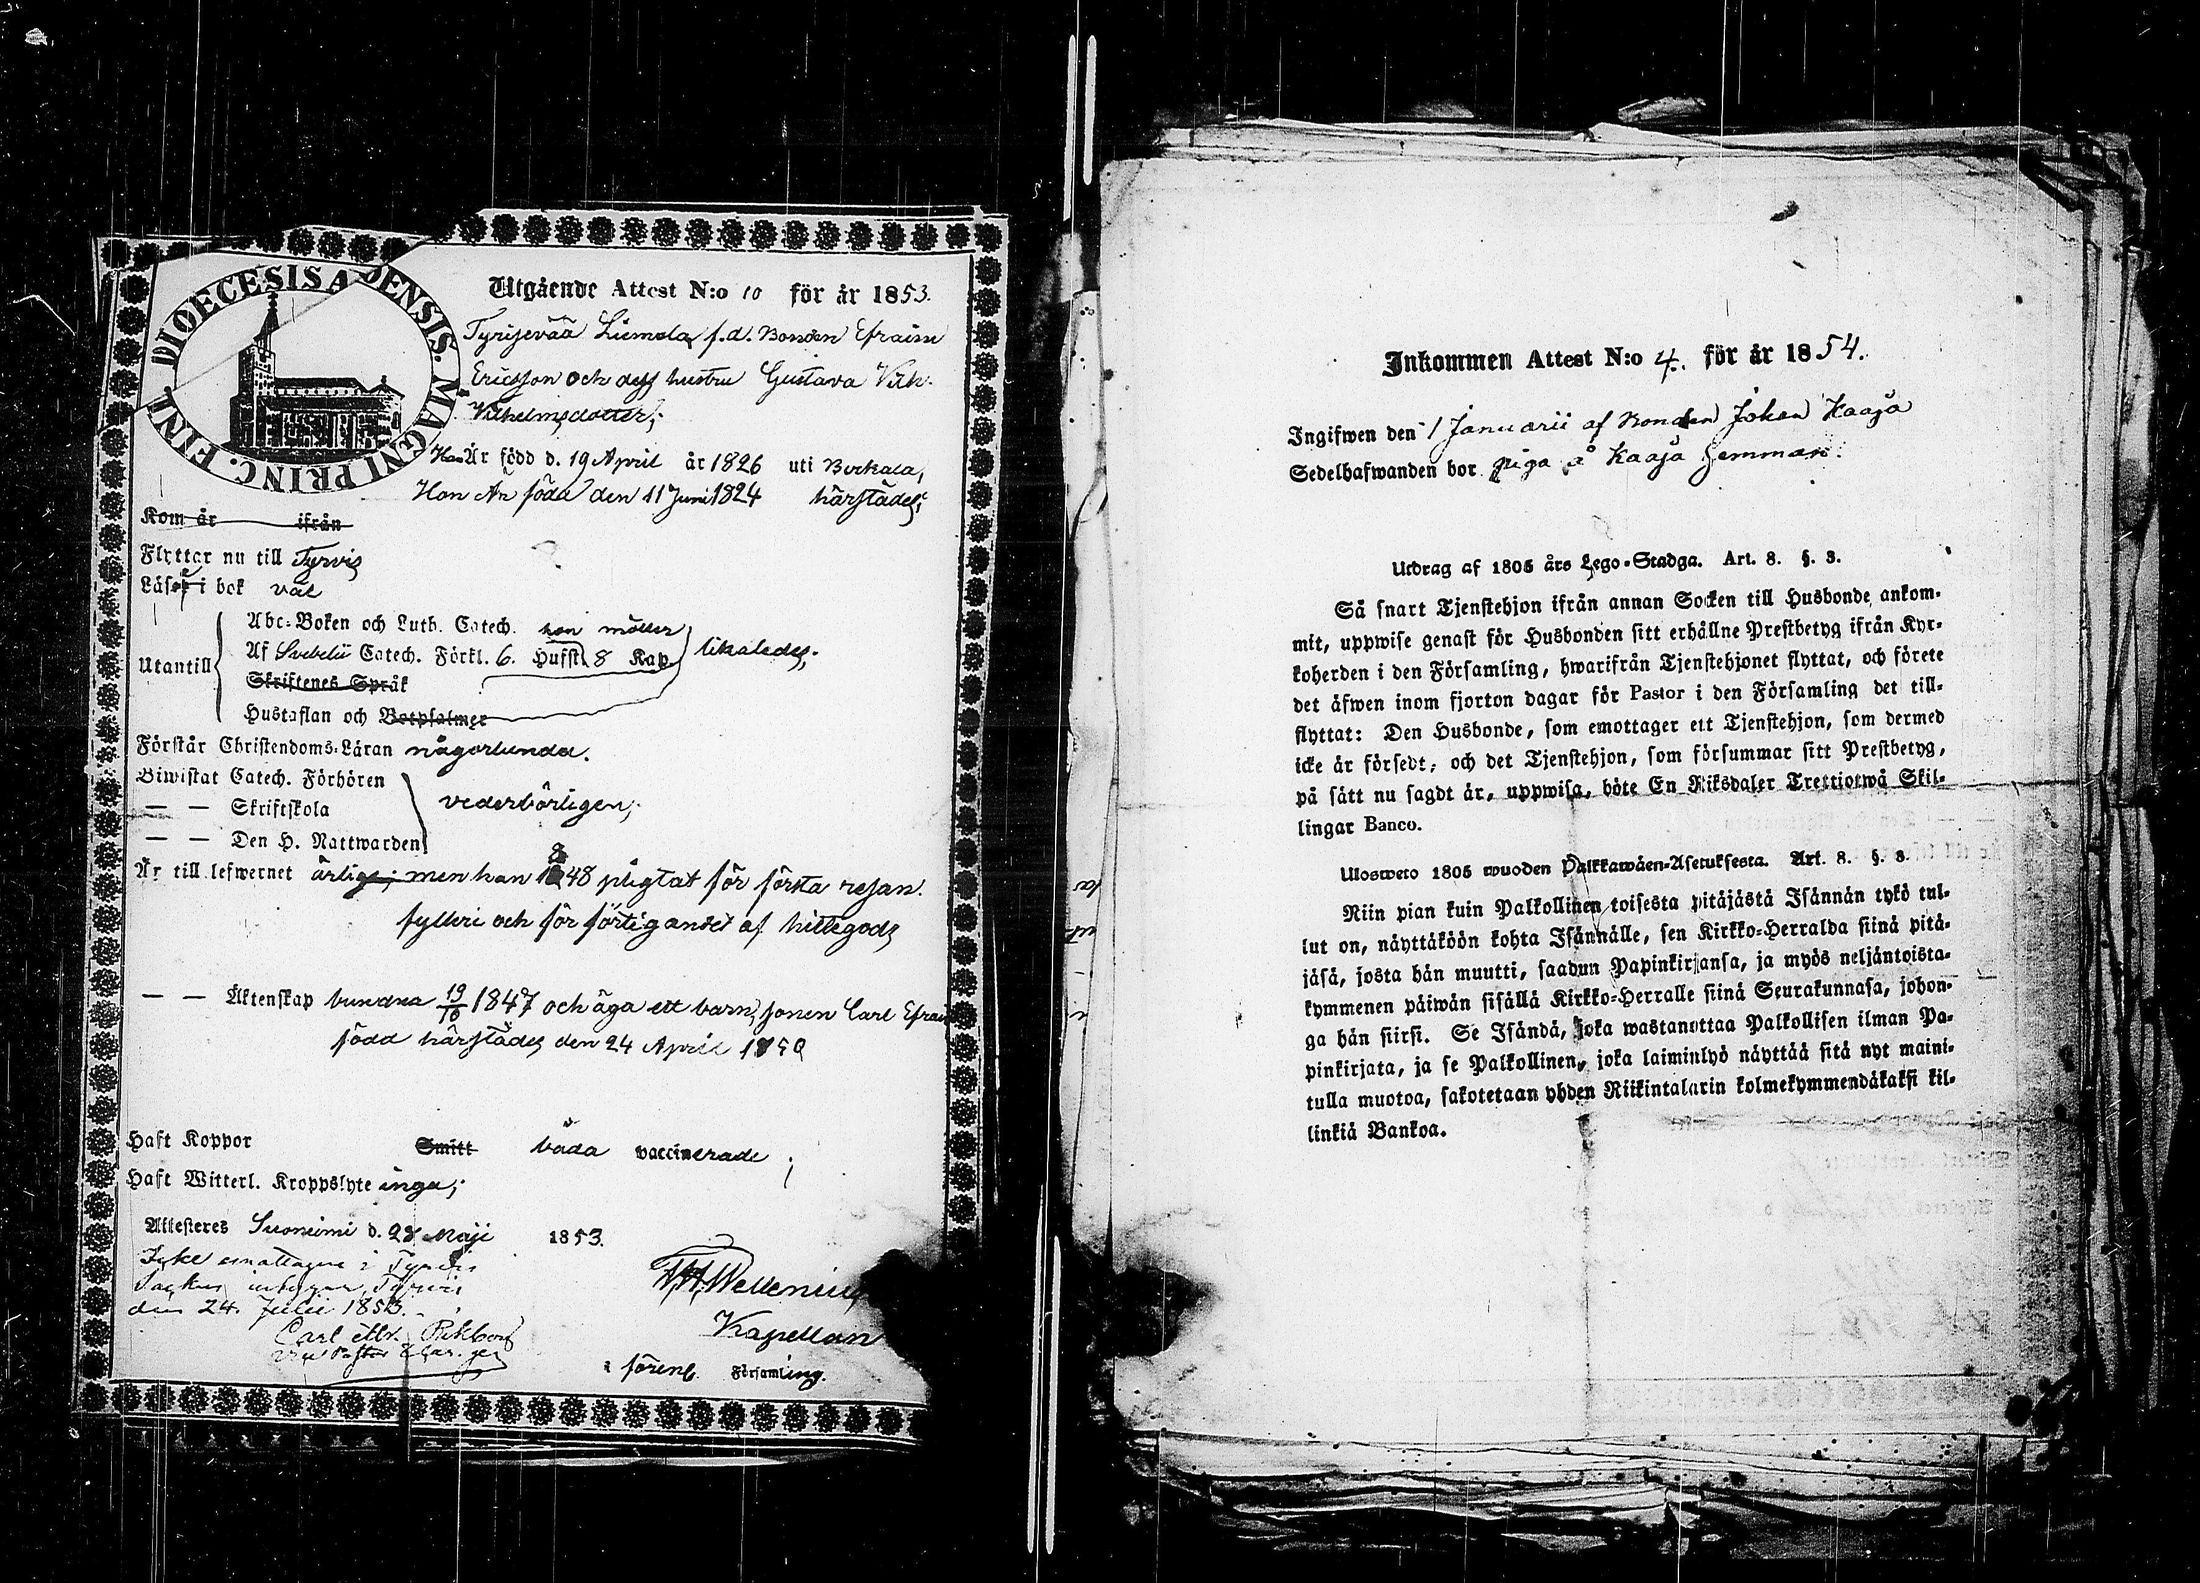 DIOECESIS A DENSIS. MAGNI PRINC. FINL.
Utgående Attest N:o 10 för år 1853.
Tyrisevää Liemola f.d. Bonden Efraim
Ericsson och dess hustru Gustava Vilh.
Vilhelmsdotter;
Han Är född d. 19 April år 1826 uti Birkala,
Hon Är föda den 11 Juni 1824 härstädes;
Kom år ifrån
Flyttar nu till Tyrvis
Läser i bok väl
Abc-Boken och Luth. Catech.
Utantill Af Svebelii Catech. Förkl. 6. Hufst. 8 Kap. likaledes;
Skriftenes Språk
Hustaflan och Botpsalmer
Förstår Christendoms-Läran någorlunda.
Biwistat Catech. Förhören
— — Skriftskola vederbörligen;
— — Den H. Nattwarden
Är till lefwernet ärliga; men han 1848 pligtat för första resan
fylleri och för förtigandet af hittegods
— — Äktenskap bundna 19/10 1847 och äga ett barn, sonen Carl Efraim
född härstädes den 24 April 1850
Haft Koppor Smitt båda vaccinerade;
Haft Witterl. Kroppslyte inga;
Attesteres Suoniemi d. 28 Maji 1853.
Icke emottagne i Tyrvis
Tyrvis
den 24. Julii 1853.
Carl
Kapellan
i förenb. Församling.
Inkommen Attest N:o 4. för år 1854.
Ingifwen den 1 Januarii af Bonden Johan Kaaja
Sedelhafwanden bor piga å Kaaja hemman.
Utdrag af 1805 års Lego-Stadga. Art. 8. §. 3.
Så snart Tjenstehjon ifrån annan Socken till Husbonde ankom-
mit, uppwise genast för Husbonden sitt erhållne Prestbetyg ifrån Kyr-
koherden i den Församling, hwarifrån Tjenstehjonet flyttat, och förete
det äfwen inom fjorton dagar för Pastor i den Församling det till-
flyttat: Den Husbonde, som emottager ett Tjenstehjon, som dermed
icke är försedt, och det Tjenstehjon, som försummar sitt Prestbetyg,
på sätt nu sagdt är, uppwisa, böte En Riksdaler Trettiotwå Skil-
lingar Banco.
Ulosweto 1805 wuoden Palkkawäen-Asetuksesta. Art. 8. §. 3.
Niin pian kuin Palkollinen toisesta pitäjästä Isännän tykö tul-
lut on, näyttäköön kohta Isännälle, sen Kirkko-Herralda siinä pitä-
jäsä, josta hän muutti, saadun Papinkirjansa, ja myös neljäntoista-
kymmenen päiwän sisällä Kirkko-Herralle siinä Seurakunnasa, johon-
ga hän siirsi. Se Isändä, joka wastanottaa Palkollisen ilman Pa-
pinkirjata, ja se Palkollinen, joka laiminlyö näyttää sitä nyt maini-
tulla muotoa, sakotetaan yhden Riikintalarin kolmekymmendäkaksi kil-
linkiä Bankoa.